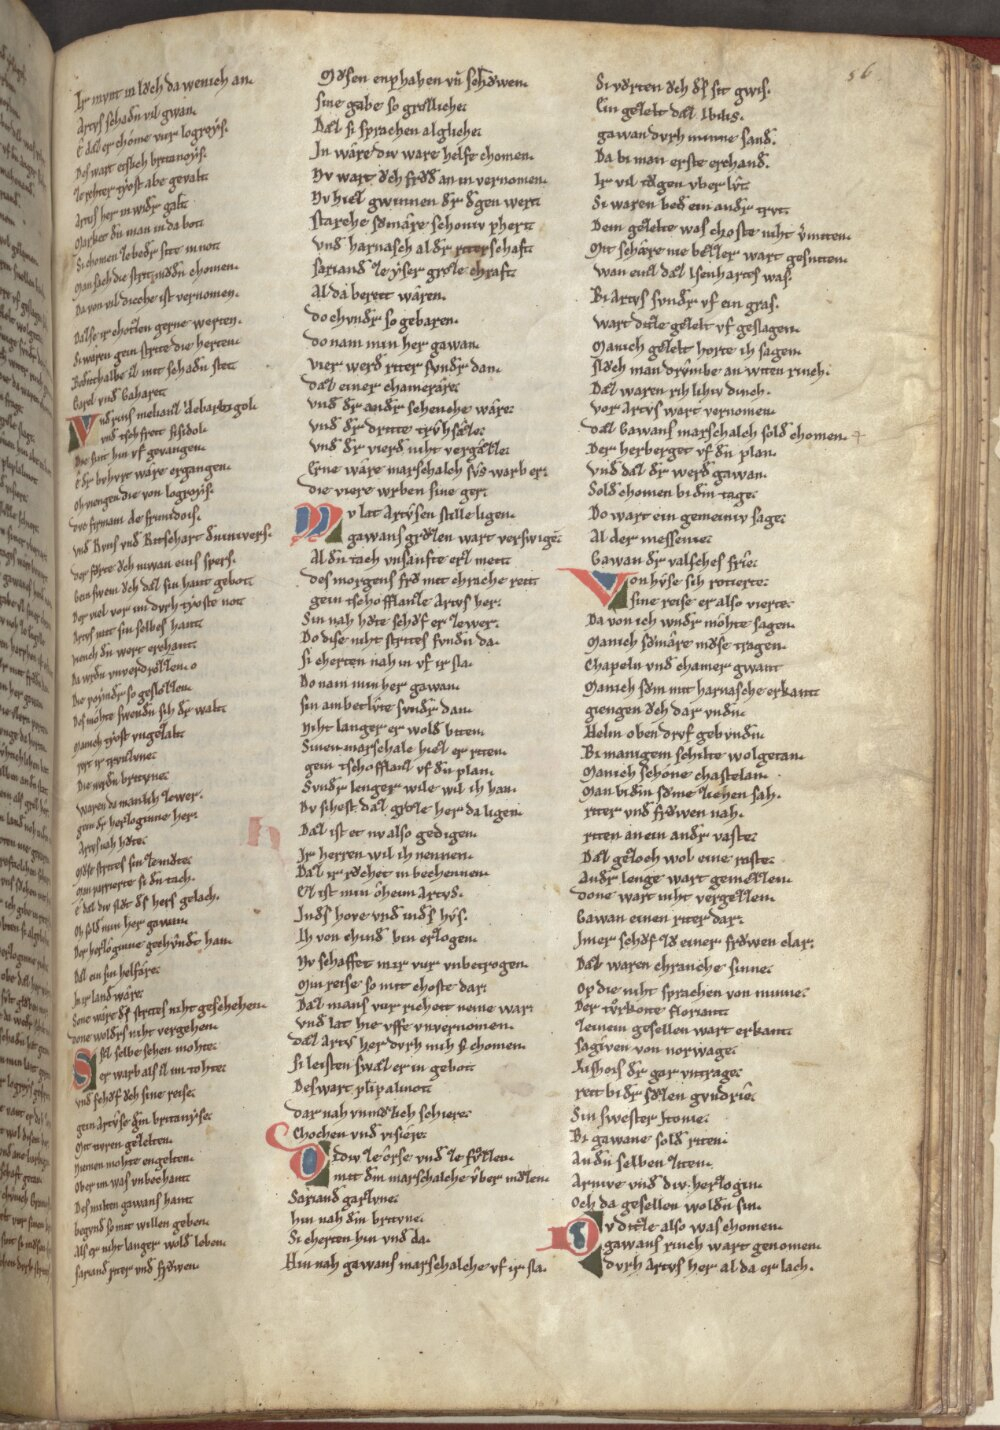 Artvs schadn vil gwan.
E dal er chome vur logroys.
Des wart etslich britanoys.
Artvs her in widr galt
Si chomen ze bedr site in not
Man sach die strit mvdn chomen.
Da von vil dicche ist vernomen.
Si waren gein strite die herten.
Bedenthalbe il mit schadn stet
Garel vnd Gaharet
Vnd rois melianl de barbigol
vnd tschfreit fisidol
Die sint hin vf gevangen.
E dr bvhvrt wære ergangen.
Och viengen die von logroys.
dvc frimam de frimidois.
vnd Ryns vnd Ritschart de nivers.
der forte och niwan eins spers.
Gein swem ech dal sin hant gebot
Der viel vor im dvrch tyoste not
Artvs mit sin selbes hant
Die poyndr so geslozzen
Des mohte swendn sich dr walt
Manich tyost vngezalt
Waren da manlich zewer.
gein dr herzoginne her
Artvs nah hote
E dal div flot ds hers gelach.
Ob sold min her gawan
Der herzoginne gechvndt han
Dal ein sin helfære
In ir land wære
Sone wære ds strites niht geschehen.
done woldrs niht vergehen.
Sfil selbe sehen mohte
er warb als il im tohte
vnd schof ech sine reise
gein Artvse dm britanyse
Mit tivren gezelten.
Niemen mohte engelten.
Ober im was vnbechant
Des milten gawans hant
begvnd so mit willen geben.
Als er niht langer wold leben.
Sariand riter vnd frowen
Mosen enphaben vn schowen.
sine gabe so grozliche
Dal si sprachen algliche
In wære div ware helfe chomen.
Nv wart och frod an in vernomen.
Nv hiel gwinnen dr dgen wert
starche somære schoniv phert
vnd harnasch al dr riterschaft
sariand ze yser groze chraft
Al da bereit waren.
do chvndr so gebaren.
do nam min her gawan
vier werd riter svndr dan
dal einer chamerære
vnd dr andr schenche wære
vnd dr dritte trvhsæze
vnd dr vierd niht vergæze
Erne wære marschalch svs warb er
die viere wrben sine ger
Nv lat Artvsen stille ligen.
gawans grozen wart verswigen
Al dn tach vnsanfte erz meit
des morgens frv mit chrache reit
gein tschofflanze Artvs her
Sin nah hote schof er zewer.
Do dise niht strites fvndn da.
Si cherten nah in vf ir sla
Do nam min her gawan
sin ambetlvte svndr dan
Niht langer er wold biten.
Sinen marschalc hiel er riten.
gein tschofflanl vf dn plan.
Svndr lenger wile wil ich han
Dv sihest dal groze her da ligen
Dal ist et nv also gedigen.
Ir herren wil ich nennen.
Dal ir rochet in bechennen
El ist min oheim Artvs.
Inds hove vnd inds hvs.
Ih von chind bin erzogen.
Nv schaffet mir vur vnbetrogen.
Min reise so mit choste dar
Dal mans vur richeit neme war
vnd lat hie vffe vnvernomen.
dal Artvs her dvrh mih si chomen.
Si leisten swal er in gebot
Des wart plipalinot
dar nah vnmozlich schiere
Chochen vnd visiere
Mit dm marschalche vber mosen.
Sariand garzvne
hin nah dm britvne
Si cherten hin vnd da.
Hin nah gawans marschalche vf ir sla.
Si vorten och ds sit gwis.
Ein gezelt dal Iblis.
gawan dvrh minne sand.
Da bi man erste erchand.
Ir vil togen vber lvt
Si waren bed ein andr trvt
Dem gezelte was choste niht vmiten.
Mit schære nie bezzer wart gesniten.
wan einl dal Isenharts was.
Bi Artvs svndr vf ein gras.
wart ditze gezelt vf geslagen.
Manich gezelt horte ih sagen.
sloch man drvmbe an witen rinch.
Dal waren rih lihiv dinch.
vor Artvs wart vernomen
dal Gawans marschalch sold chomen.
Der herberget vf dn plan.
vnd dal dr werd gawan.
Sold chomen bi dm tage
Do wart ein gemeiniv sage
Al der messenie
Gawan dr valsches frie
Von hvse sih rotierte
sine reise er also vierte
Da von ich wndr mohte sagen.
Manich somære mose tragen.
Chapeln vnd chamer gwant
Manich som mit harnasche erkant
giengen och dar vndn
Helm oben drvf gebvndn
Bi manigem schilte wolgetan.
Manich schone chastelan
Man bi dn some ziehen sah.
riter vnd frowen nah.
riten an ein andr vaste
Dal gezoch wol eine raste
Andr lenge wart gemezzen.
done wart niht vergezzen.
Gawan einen riter dar
Imer schof zo einer frowen clar
Dal waren chranche sinne
Op die niht sprachen von minne
Der tvrkoite floriant
zeinem gesellen wart erkant
sagiven von norwage
Lishois dr gar vntrage
reit bi dr sozen gvndrie
Sin swester Itonie
Bi gawane sold riten
An dn selben ziten.
Arnive vnd div herzogin
Och da gesellen woldn sin.
Nv ditze also was chomen
gawans rinch wart genomen
dvrh Artvs her al da er lach.
56